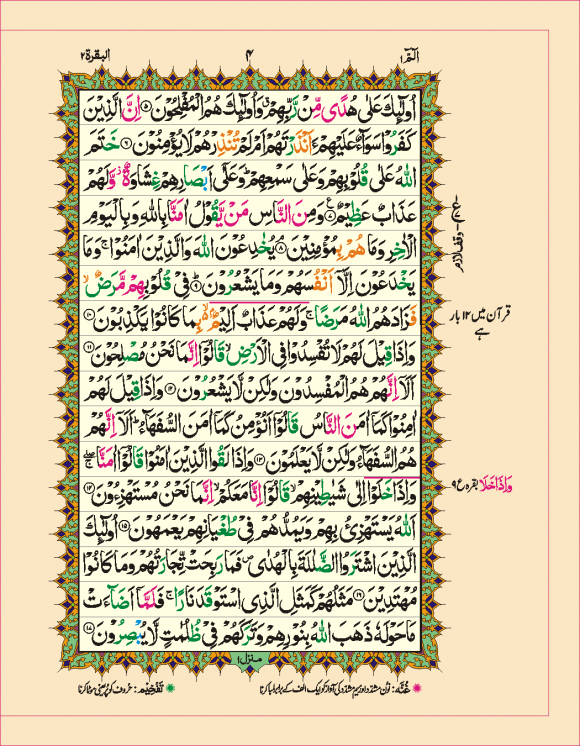 الٓمّٓ ۱
۴
البقرة ۲
اُولٰٓئِكَ عَلٰى هُدًى مِّنْ رَّبِّهِمْ ۗ وَاُولٰٓئِكَ هُمُ الْمُفْلِحُوْنَ ۝۵ اِنَّ الَّذِيْنَ
كَفَرُوْا سَوَآءٌ عَلَيْهِمْ ءَاَنْذَرْتَهُمْ اَمْ لَمْ تُنْذِرْهُمْ لَا يُؤْمِنُوْنَ ۝۶ خَتَمَ
اللّٰهُ عَلٰى قُلُوْبِهِمْ وَعَلٰى سَمْعِهِمْ ؕ وَعَلٰٓى اَبْصَارِهِمْ غِشَاوَةٌ ؗ وَّلَهُمْ
عَذَابٌ عَظِيْمٌ ۝۷ وَمِنَ النَّاسِ مَنْ يَّقُوْلُ اٰمَنَّا بِاللّٰهِ وَبِالْيَوْمِ
الْاٰخِرِ وَمَا هُمْ بِمُؤْمِنِيْنَ ۝۸ يُخٰدِعُوْنَ اللّٰهَ وَالَّذِيْنَ اٰمَنُوْا ۚ وَمَا
يَخْدَعُوْنَ اِلَّآ اَنْفُسَهُمْ وَمَا يَشْعُرُوْنَ ۝۹ فِيْ قُلُوْبِهِمْ مَّرَضٌ ۙ
فَزَادَهُمُ اللّٰهُ مَرَضًا ۚ وَلَهُمْ عَذَابٌ اَلِيْمٌۢ ۙ بِمَا كَانُوْا يَكْذِبُوْنَ ۝۱۰
وَاِذَا قِيْلَ لَهُمْ لَا تُفْسِدُوْا فِى الْاَرْضِ ۙ قَالُوْٓا اِنَّمَا نَحْنُ مُصْلِحُوْنَ ۝۱۱
اَلَآ اِنَّهُمْ هُمُ الْمُفْسِدُوْنَ وَلٰكِنْ لَّا يَشْعُرُوْنَ ۝۱۲ وَاِذَا قِيْلَ لَهُمْ
اٰمِنُوْا كَمَآ اٰمَنَ النَّاسُ قَالُوْٓا اَنُؤْمِنُ كَمَآ اٰمَنَ السُّفَهَآءُ ؕ اَلَآ اِنَّهُمْ
هُمُ السُّفَهَآءُ وَلٰكِنْ لَّا يَعْلَمُوْنَ ۝۱۳ وَاِذَا لَقُوا الَّذِيْنَ اٰمَنُوْا قَالُوْٓا اٰمَنَّا ۚۖ
وَاِذَا خَلَوْا اِلٰى شَيٰطِيْنِهِمْ ۙ قَالُوْٓا اِنَّا مَعَكُمْ ۙ اِنَّمَا نَحْنُ مُسْتَهْزِءُوْنَ ۝۱۴
اَللّٰهُ يَسْتَهْزِئُ بِهِمْ وَيَمُدُّهُمْ فِيْ طُغْيَانِهِمْ يَعْمَهُوْنَ ۝۱۵ اُولٰٓئِكَ
الَّذِيْنَ اشْتَرَوُا الضَّلٰلَةَ بِالْهُدٰى ۪ فَمَا رَبِحَتْ تِّجَارَتُهُمْ وَمَا كَانُوْا
مُهْتَدِيْنَ ۝۱۶ مَثَلُهُمْ كَمَثَلِ الَّذِى اسْتَوْقَدَ نَارًا ۚ فَلَمَّآ اَضَآءَتْ
مَا حَوْلَهٗ ذَهَبَ اللّٰهُ بِنُوْرِهِمْ وَتَرَكَهُمْ فِيْ ظُلُمٰتٍ لَّا يُبْصِرُوْنَ ۝۱۷
وقف لازم
قرآن میں ۱۲ بار
ہے
وَاِذَا خَلَا بقرہ ع ۹
منزل ۱
غُنَّہ: نون مشدد اور میم مشدد کی آواز کو ایک الف کے برابر لمبا کرنا
تَفْخِیْم: حروف کو پُر یعنی موٹا کرنا